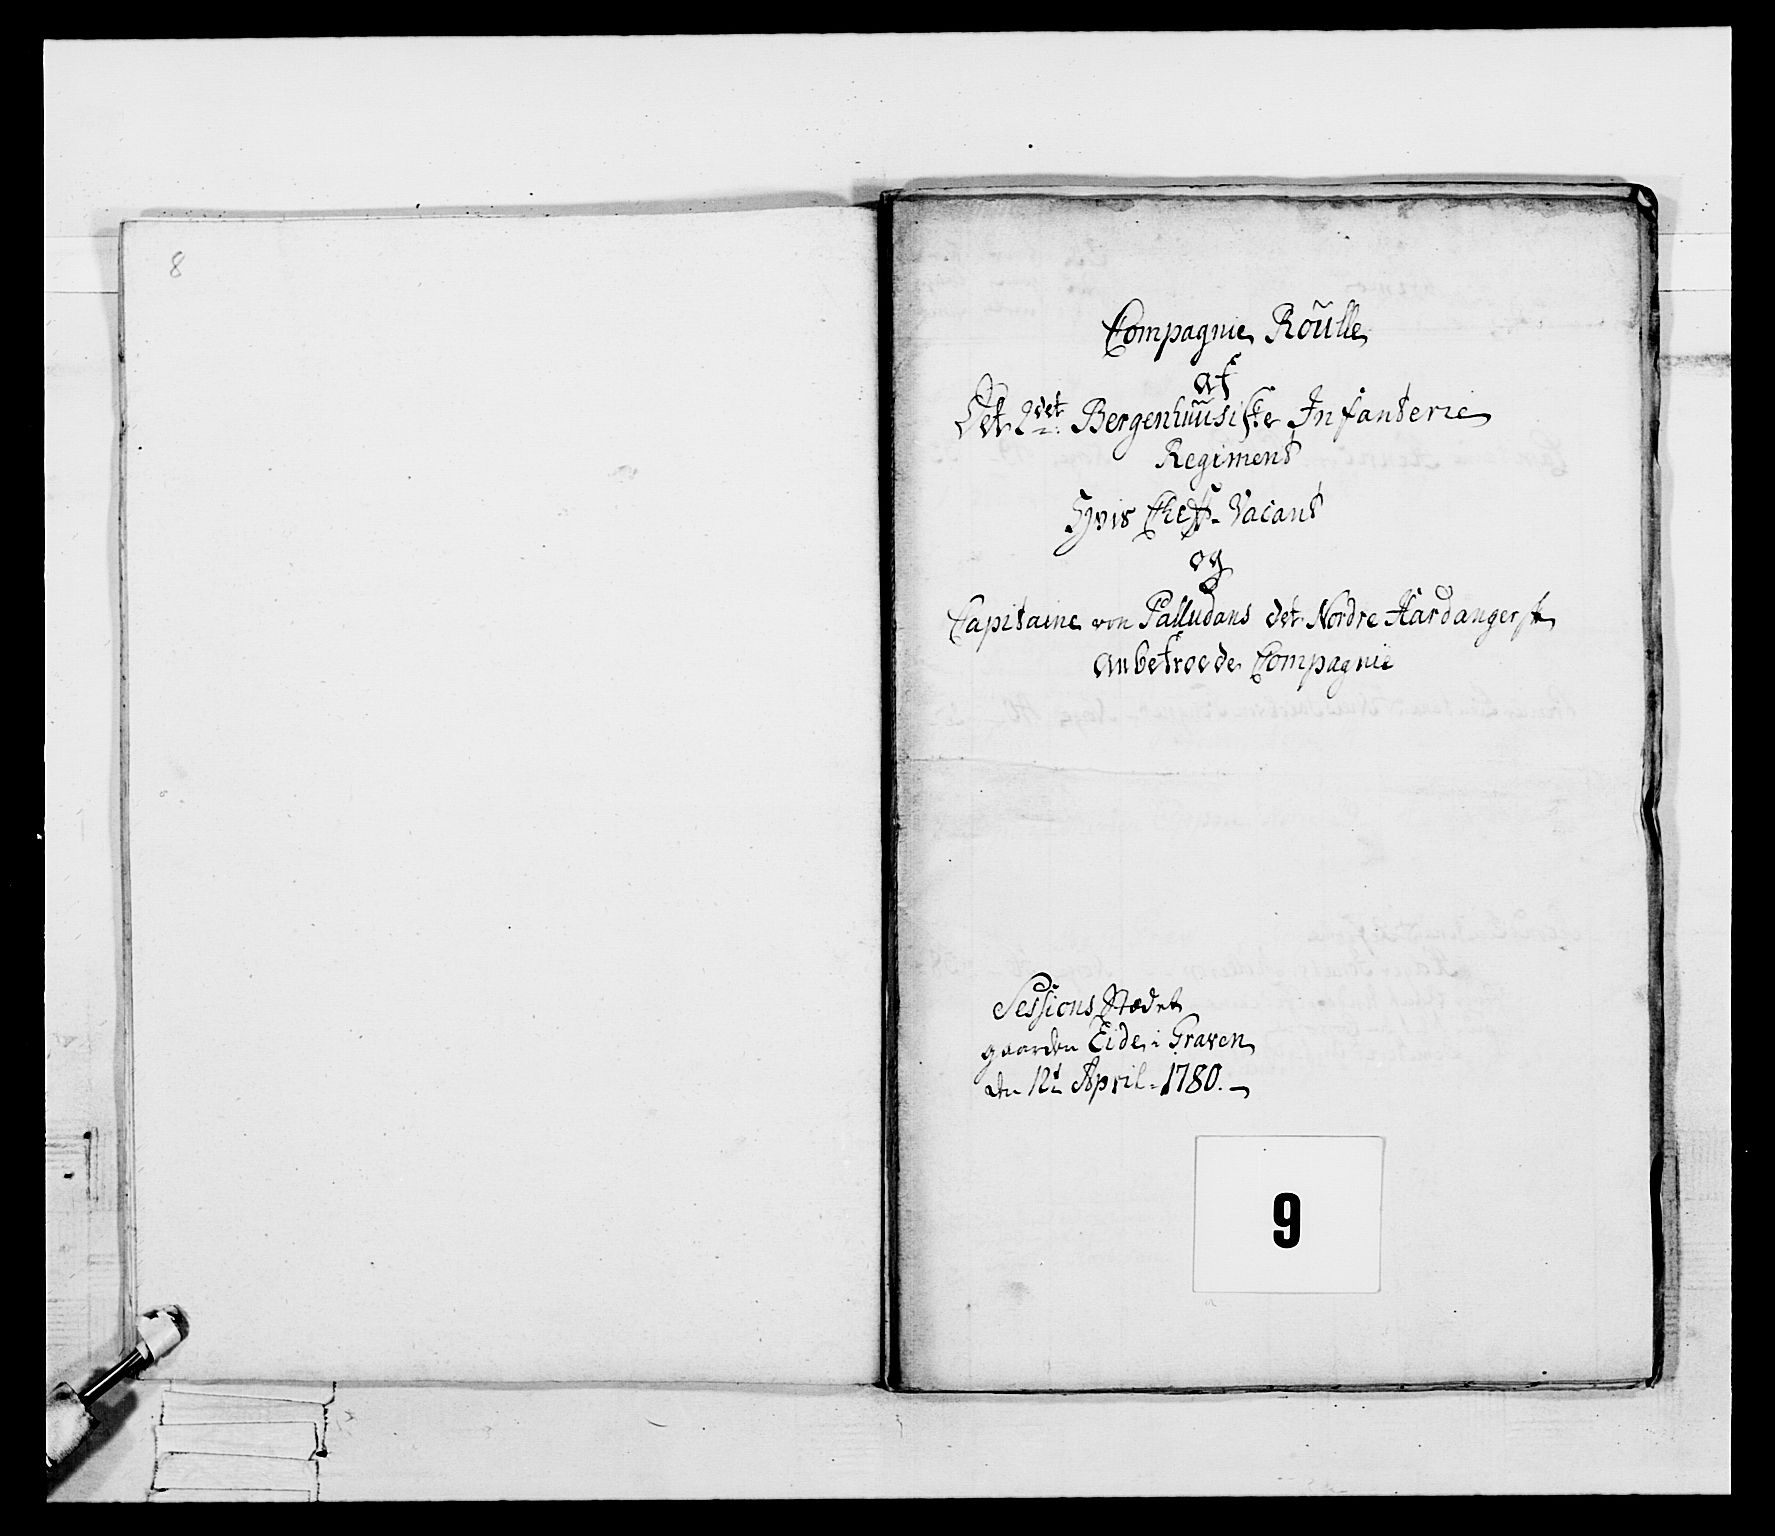 8
Compagnie Roũlle
af
Det 2det Bergenhũusiske Infanterie
Regiment
Hvis Cheff- Vacant
og
Capitaine von Palludans det Nordre Hardangersk
anbetroede Compagnie
Sessions Stædet
gaarden Eide i Graven
den 12te April- 1780.
9